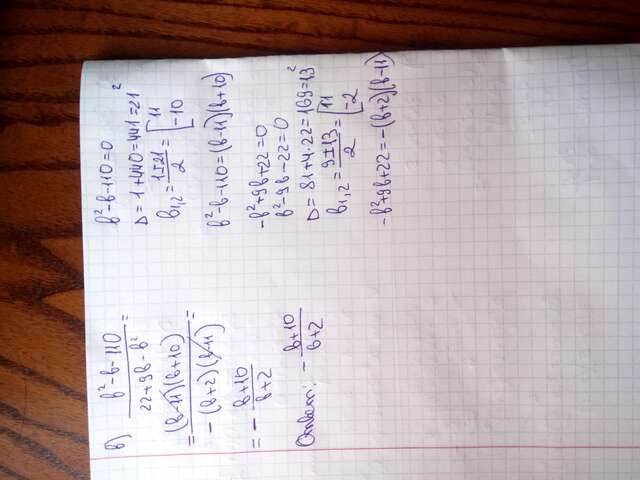 в) (b²-b-110)/(22+9b-b²) =
= ((b-11)(b+10))/(-(b+2)(b-11)) =
= - (b+10)/(b+2)
Ответ: - (b+10)/(b+2)
b²-b-110=0
D=1+440=441=21²
b₁,₂ = (1±21)/2 = [11 -10
b²-b-110=(b-11)(b+10)
-b²+9b+22=0
b²-9b-22=0
D=81+4·22=169=13²
b₁,₂ = (9±13)/2 = [11 -2
-b²+9b+22=-(b+2)(b-11)